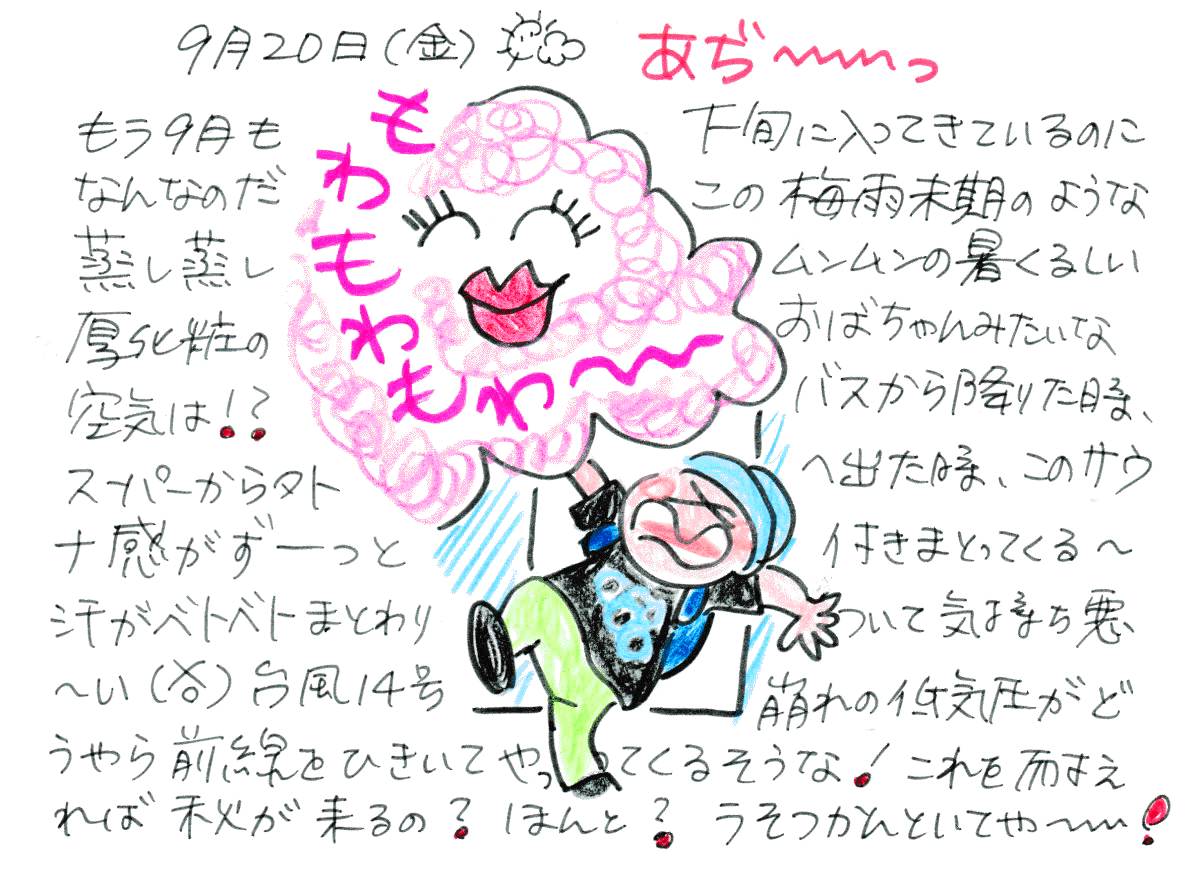 9月20日(金) あぢ〜〜〜っ
もわもわもわもわ〜〜〜
もう9月も 下旬に入ってきているのに
なんなのだ この梅雨末期のような
蒸し蒸し ムンムンの暑くるしい
厚化粧の おばちゃんみたいな
空気は!? バスから降りた時、
スーパーから外 へ出た時、このサウ
ナ感がずーっと 付きまとってくる〜
汗がベトベトまとわり ついて気持ち悪
〜い(谷)台風14号 崩れの低気圧がど
うやら前線をひきいてやってくるそうな! これを耐え
れば秋が来るの? ほんと? うそつかんといてや〜〜!